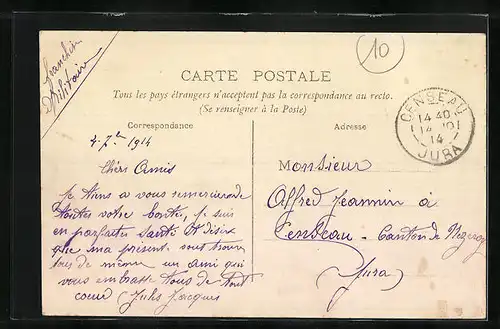 franchise
Militaire
10
CARTE POSTALE
Tous les pays étrangers n'acceptent pas la correspondance au recto.
(Se renseigner à la Poste)
Correspondance
Adresse
CENSEAU
14 40
14
JURA
4-7bre 1914
Chers Amis
Je tiens a vous remercier de
toutes votre bontés, je suis
en parfaites santé et désir
que ma présent vous trouv
tous de même un ami qui
vous embrasse tous de tout
cœur Jules Jacques
Monsieur
Alfred Jeannin à
Censeau - Canton de Nozeroy
(Jura)